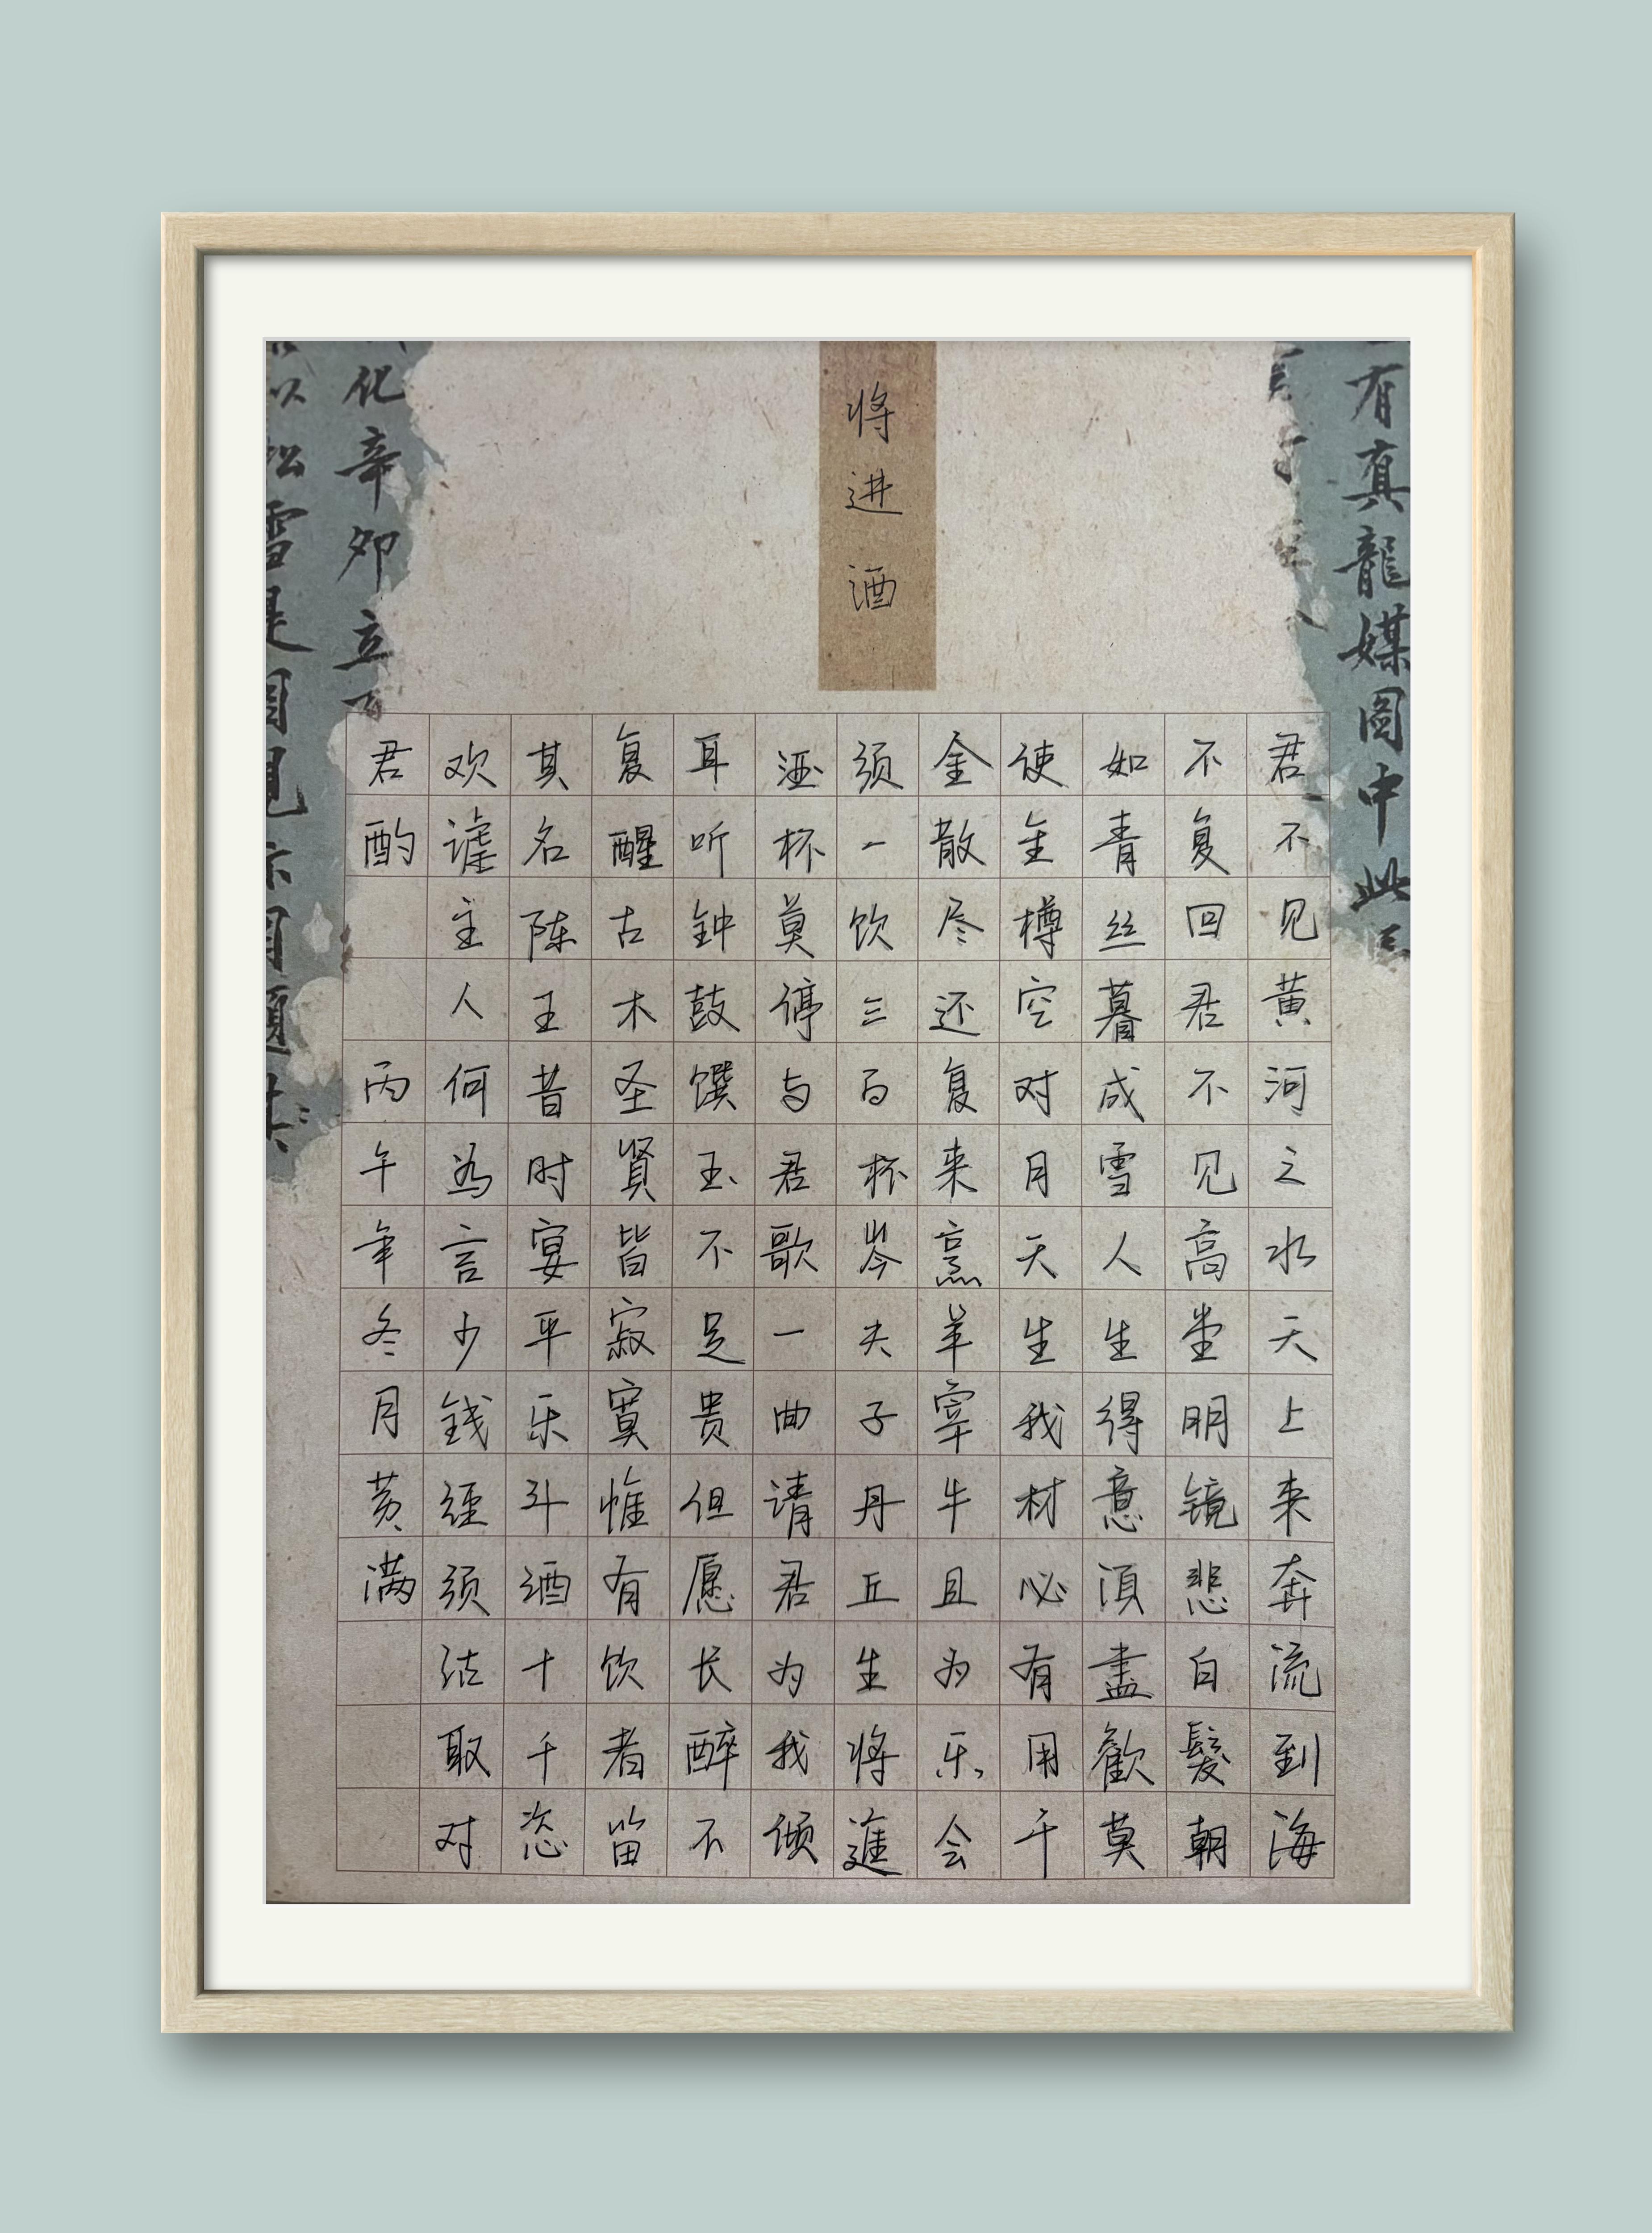 有真龍媒圖中此
将进酒
君不见黄河之水天上来奔流到海
不复回君不见高堂明镜悲白髮朝
如青丝暮成雪人生得意須盡歡莫
使金樽空对月天生我材必有用千
金散尽还复来烹羊宰牛且为乐会
须一饮三百杯岑夫子丹丘生将進
酒杯莫停与君歌一曲请君为我倾
耳听钟鼓馔玉不足贵但愿长醉不
复醒古木圣贤皆寂寞惟有饮者留
其名陈王昔时宴平乐斗酒十千恣
欢谑主人何為言少钱經须沽取对
君酌 丙午年冬月黄满
化辛卯立
以松雪是圖見亦圖題其